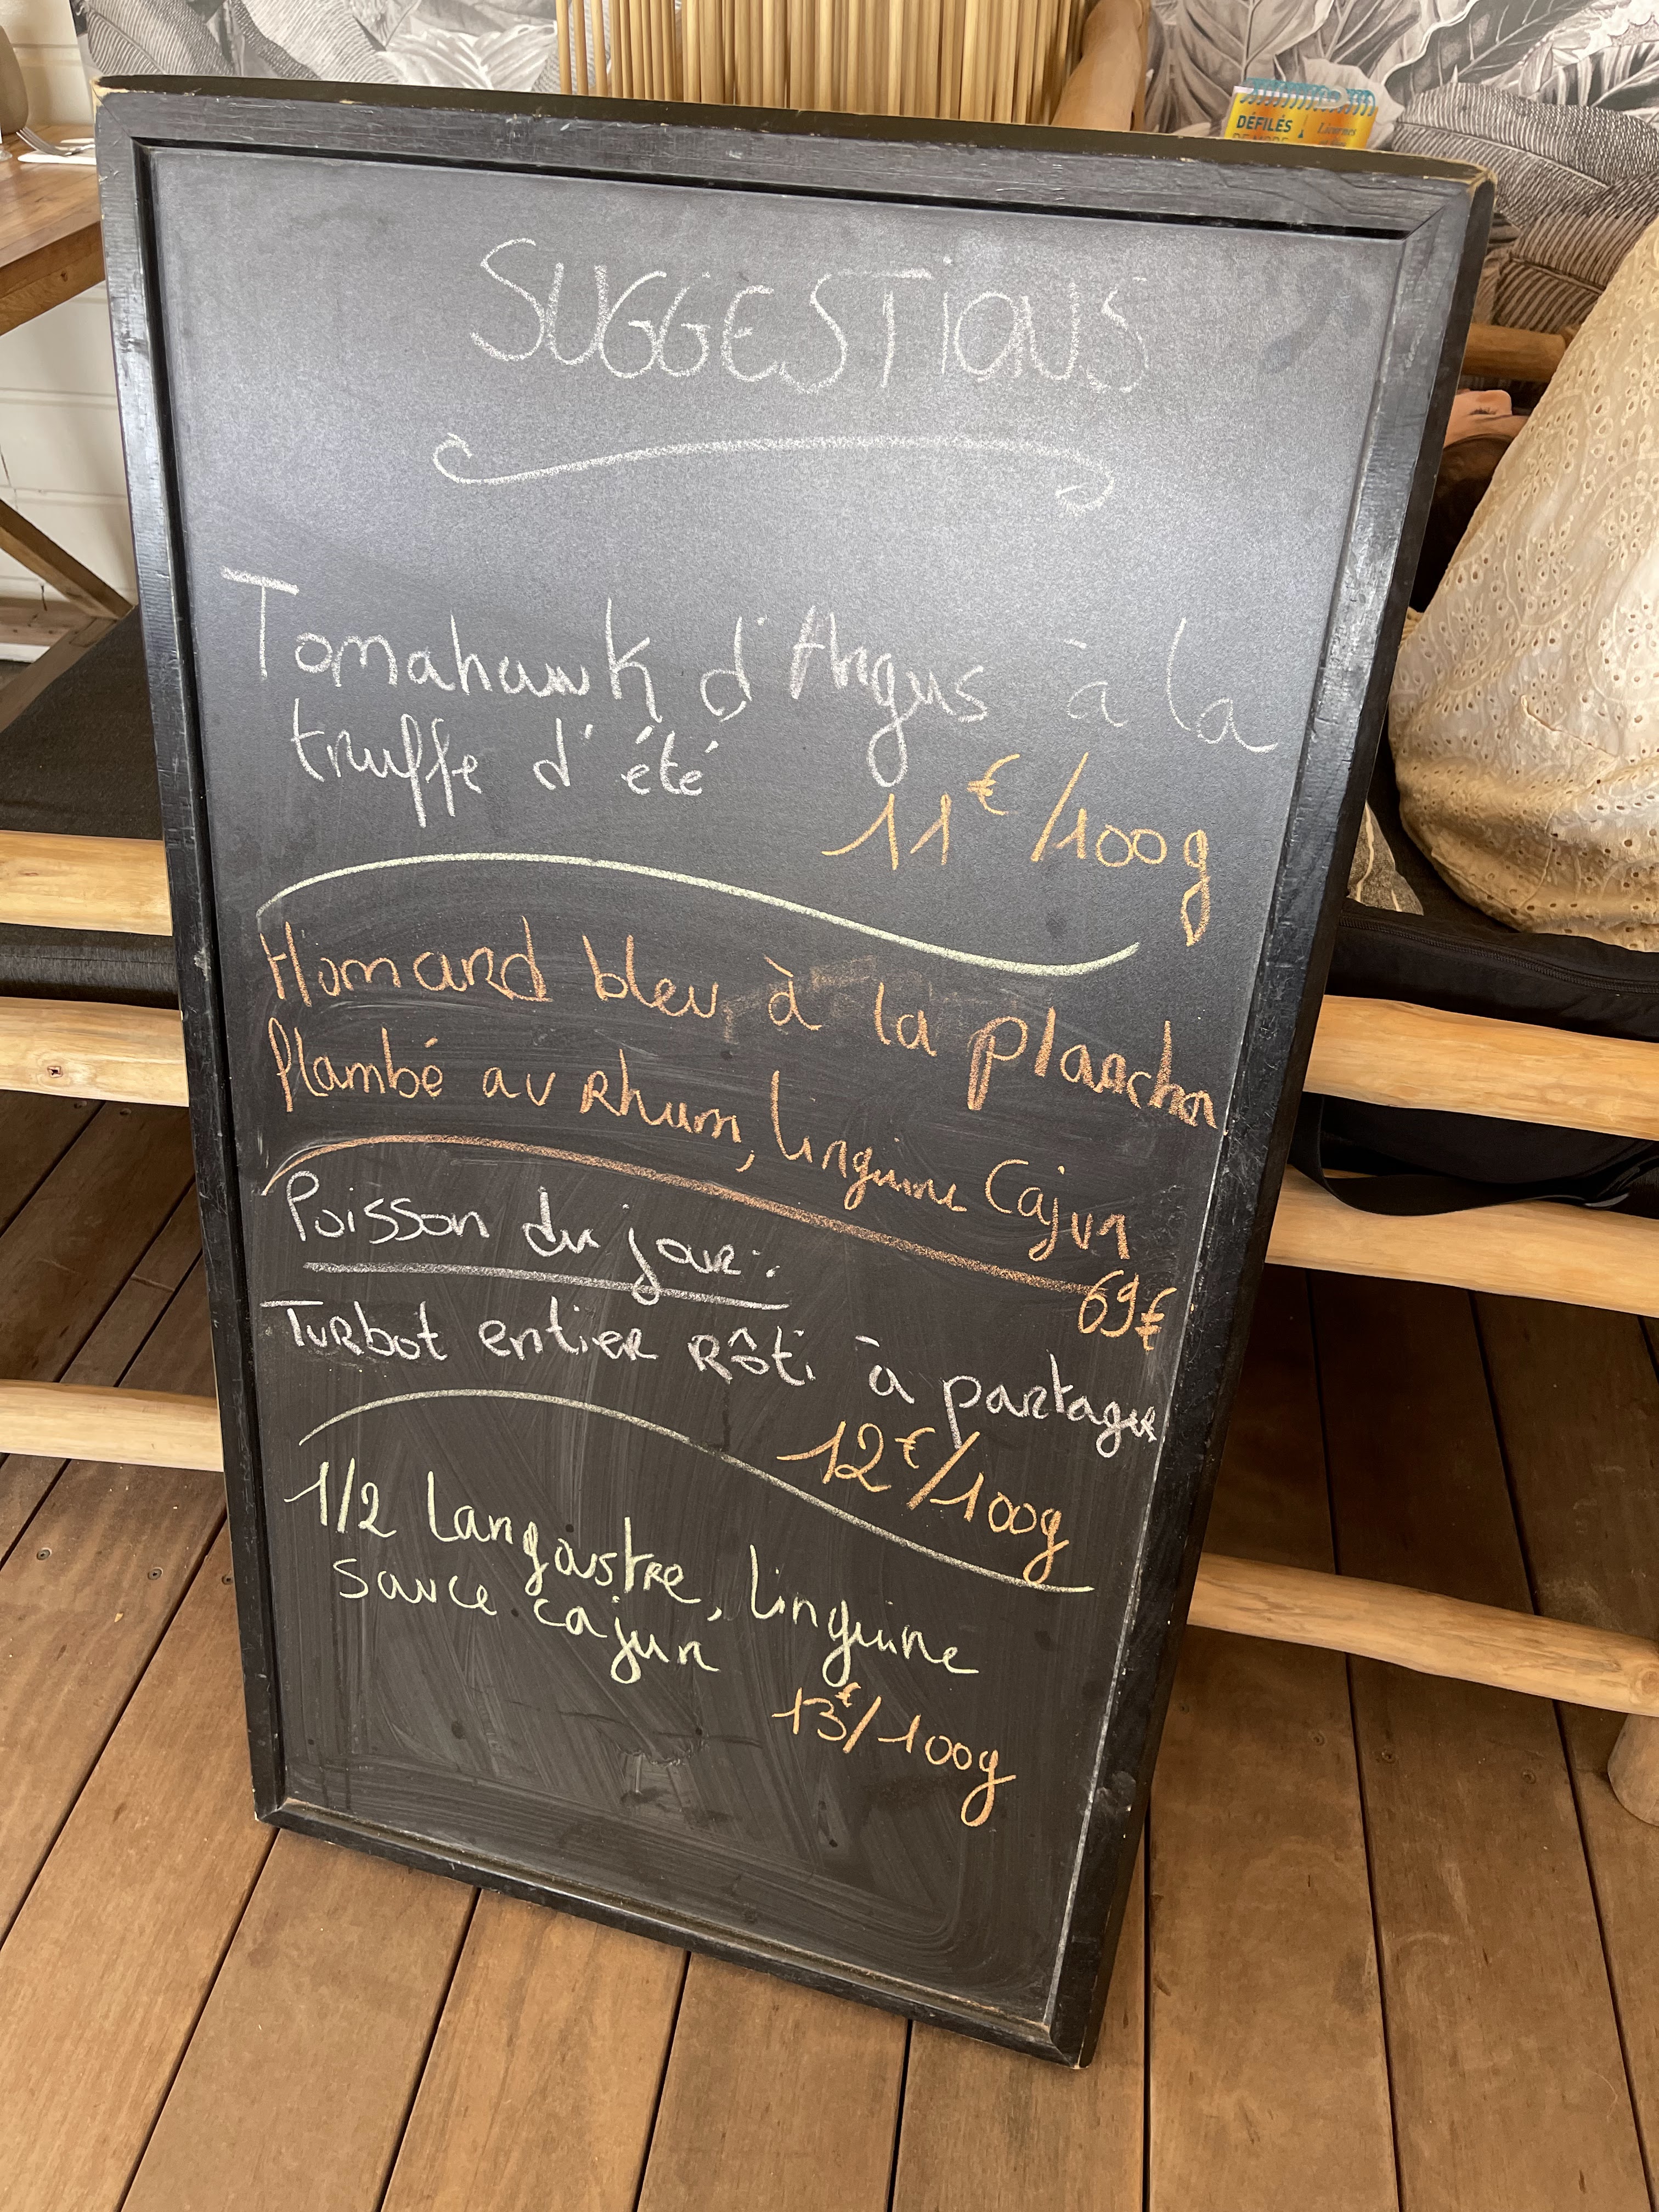 DÉFILÉS
Licornes
SUGGESTiONS
Tomahawk d'Angus à la
truffe d'été
11€/100g
Homard bleu à la plancha
flambé au Rhum, linguine Cajun
69€
Poisson du jour:
Turbot entier Rôti à partager
12€/100g
1/2 Langoustre, linguine
sauce cajun
13€/100g